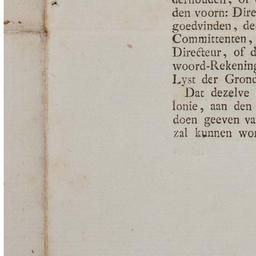 den voorn: Dire
goedvinden, de
Committenten,
Directeur, of d
woord-Rekening
Lyst der Grond
Dat dezelve
lonie, aan den
doen geeven va
zal kunnen wor